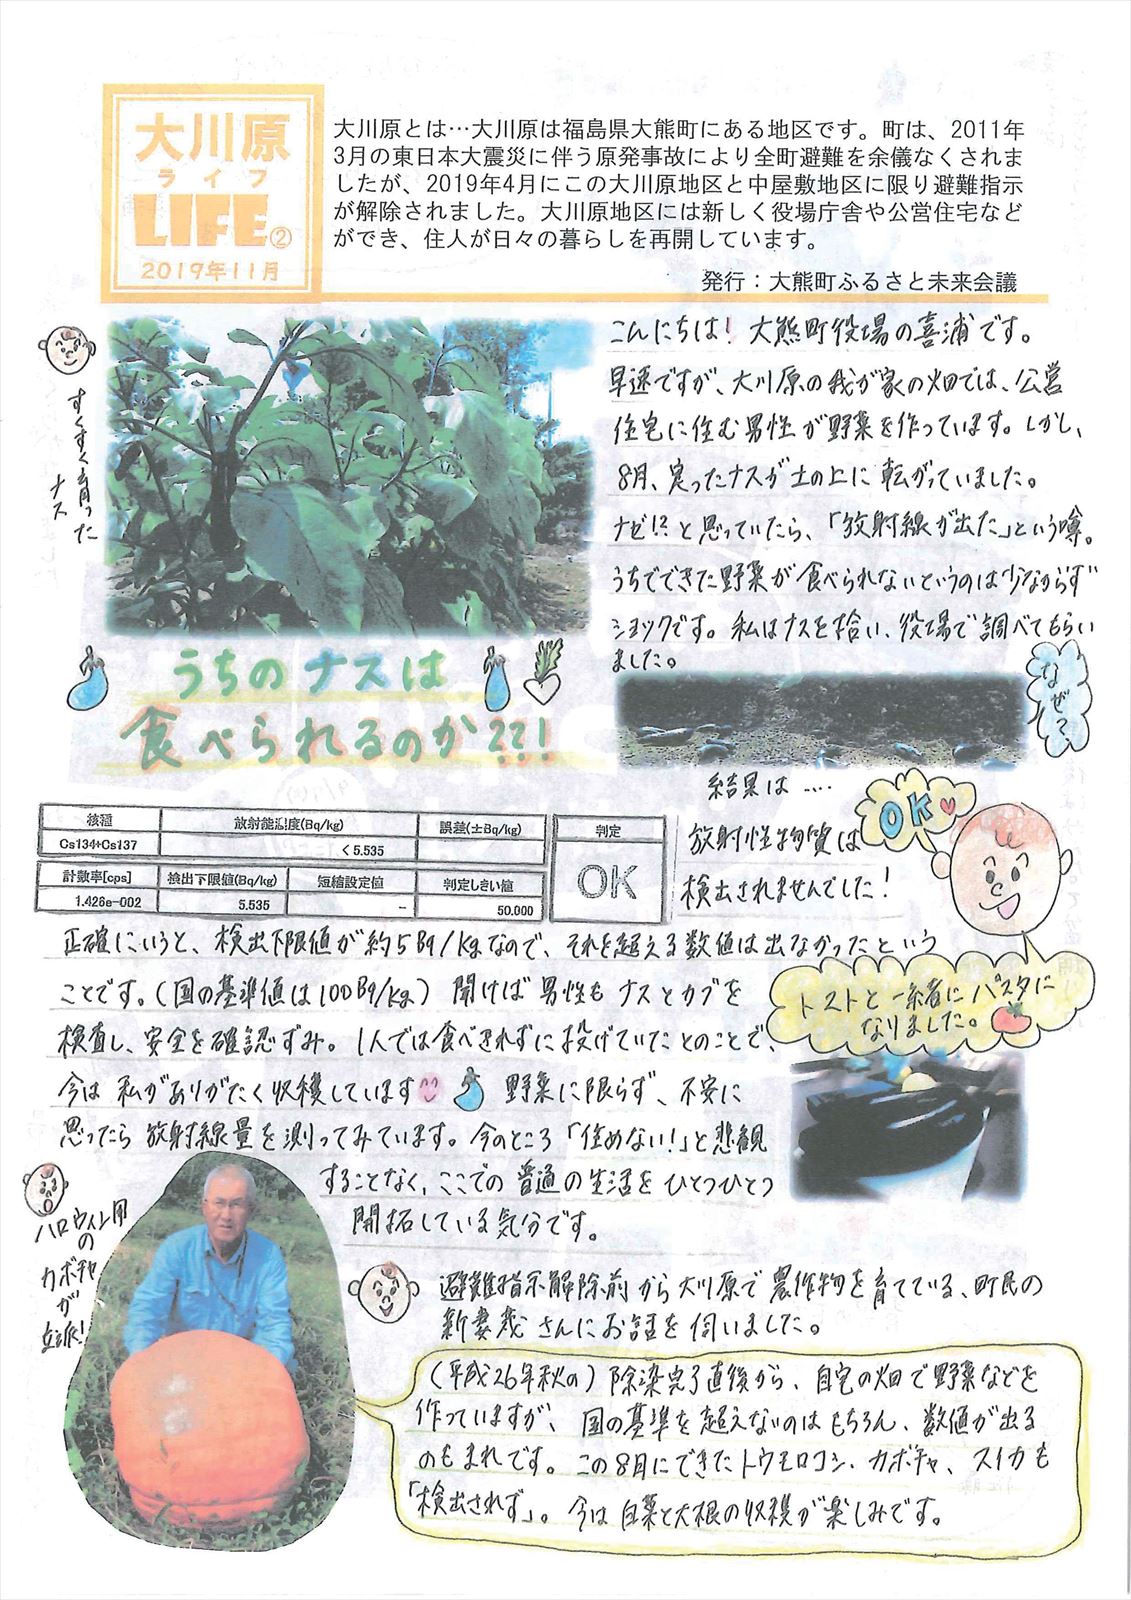 大川原
ライフ
LIFE②
2019年11月
大川原とは…大川原は福島県大熊町にある地区です。町は、2011年
3月の東日本大震災に伴う原発事故により全町避難を余儀なくされま
したが、2019年4月にこの大川原地区と中屋敷地区に限り避難指示
が解除されました。大川原地区には新しく役場庁舎や公営住宅など
ができ、住人が日々の暮らしを再開しています。
発行：大熊町ふるさと未来会議
すくすく育った
ナス
こんにちは！大熊町役場の喜浦です。
早速ですが、大川原の我が家の畑では、公営
住宅に住む男性が野菜を作っています。しかし、
8月、実ったナスが土の上に転がっていました。
ナゼ!?と思っていたら、「放射線が出た」という噂。
うちでできた野菜が食べられないというのは少なからず
ショックです。私はナスを拾い、役場で調べてもらい
ました。
なぜ？
うちのナスは
食べられるのか??!
結果は….
OK
核種
放射能濃度(Bq/kg)
誤差(±Bq/kg)
判定
Cs134+Cs137
< 5.535
OK
計数率[cps]
検出下限値(Bq/kg)
短縮設定値
判定しきい値
1.426e-002
5.535
-
50.000
放射性物質は
検出されませんでした！
正確にいうと、検出下限値が約5Bq/kgなので、それを超える数値は出なかったという
ことです。(国の基準値は100Bq/kg) 聞けば男性もナスとカブを
検査し、安全を確認ずみ。1人では食べきれずに投げていたとのことで、
今は私がありがたく収穫しています 野菜に限らず、不安に
思ったら放射線量を測ってみています。今のところ「住めない！」と悲観
することなく、ここでの普通の生活をひとつひとつ
開拓している気分です。
トストと一緒にパスタに
なりました。
ハロウィン用
の
カボチャ
が
立派！
避難指示解除前から大川原で農作物を育てている、町民の
新妻茂さんにお話を伺いました。
(平成26年秋の)除染完了直後から、自宅の畑で野菜などを
作っていますが、国の基準を超えないのはもちろん、数値が出る
のもまれです。この8月にできたトウモロコシ、カボチャ、スイカも
「検出されず」。今は白菜と大根の収穫が楽しみです。